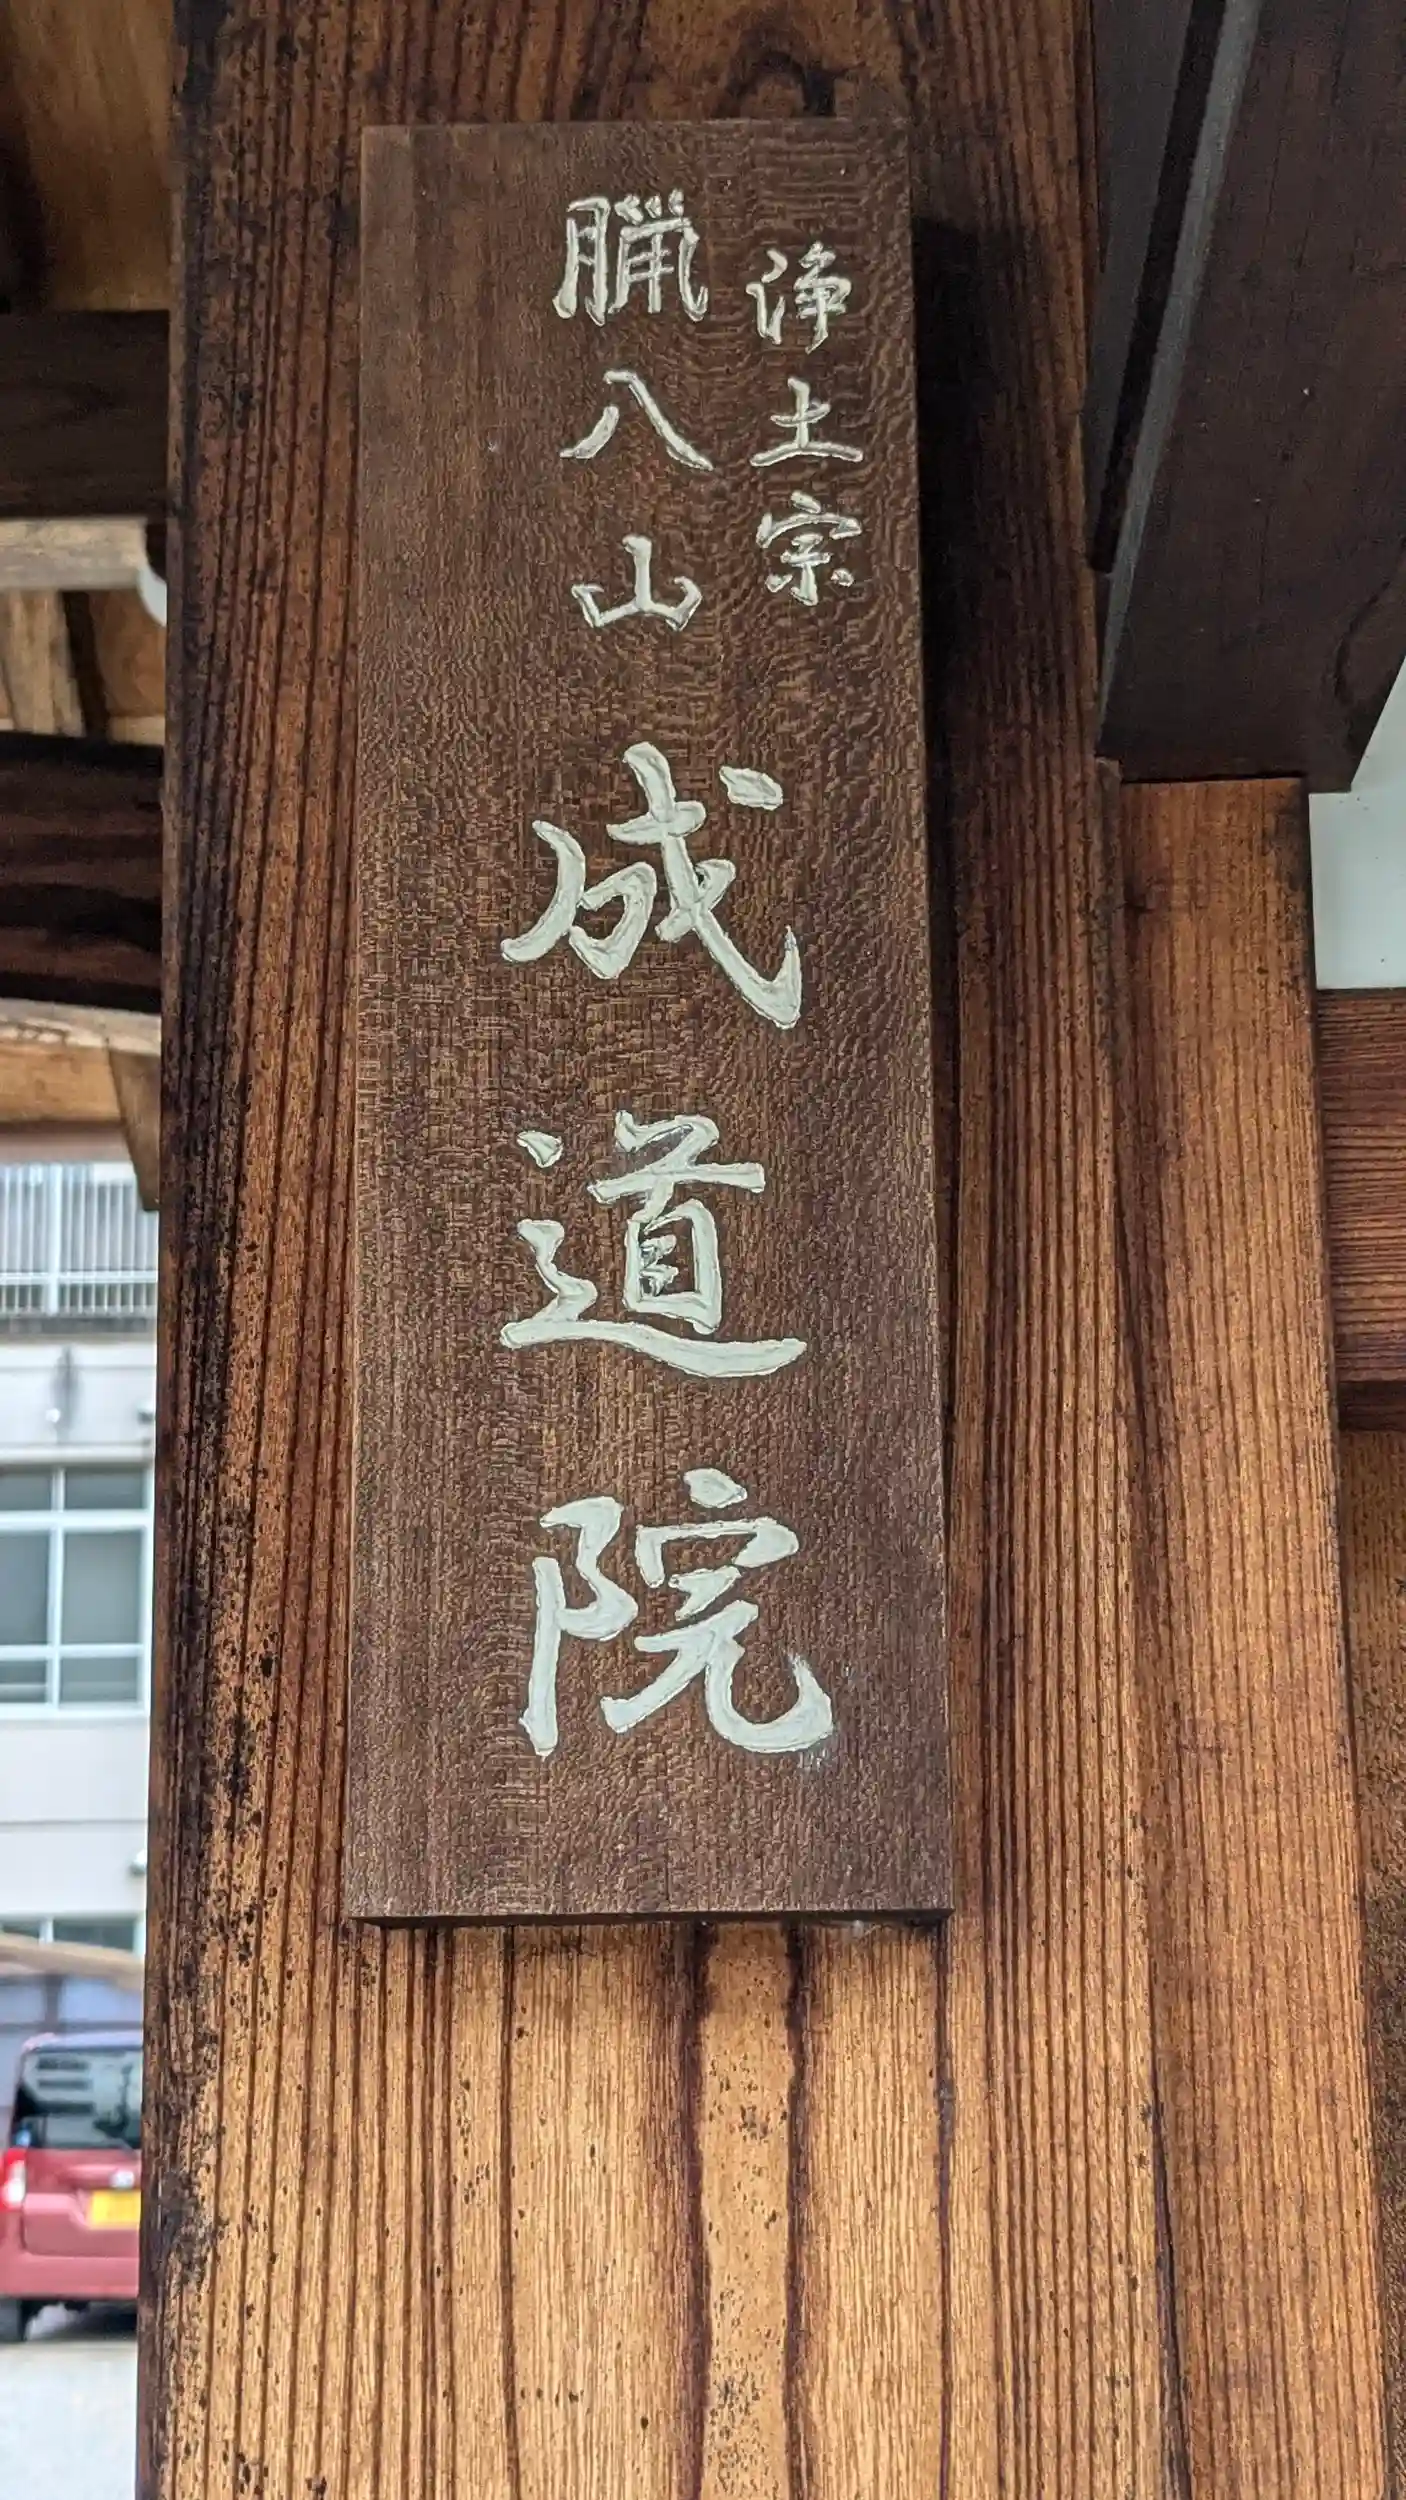 浄土宗
臘八山
成道院